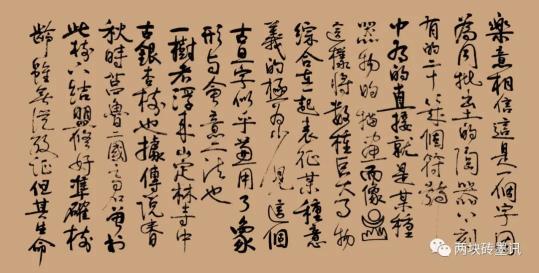 樂意相信這是一個字因
為同批出土的陶器上刻
有的二十個符號
中有的直接就是某種
器物的而像
這樣將數種巨大事物
綜合在一起表征某種意
義的極為少見這個
古旦字似乎兼用了象
形與會意二法也
一樹在浮來山定林寺中
古銀杏枝也據傳說春
秋時莒魯二國曾於
此樹下結盟修好準確樹
齡雖無從考証但其生命
两块砖墨讯